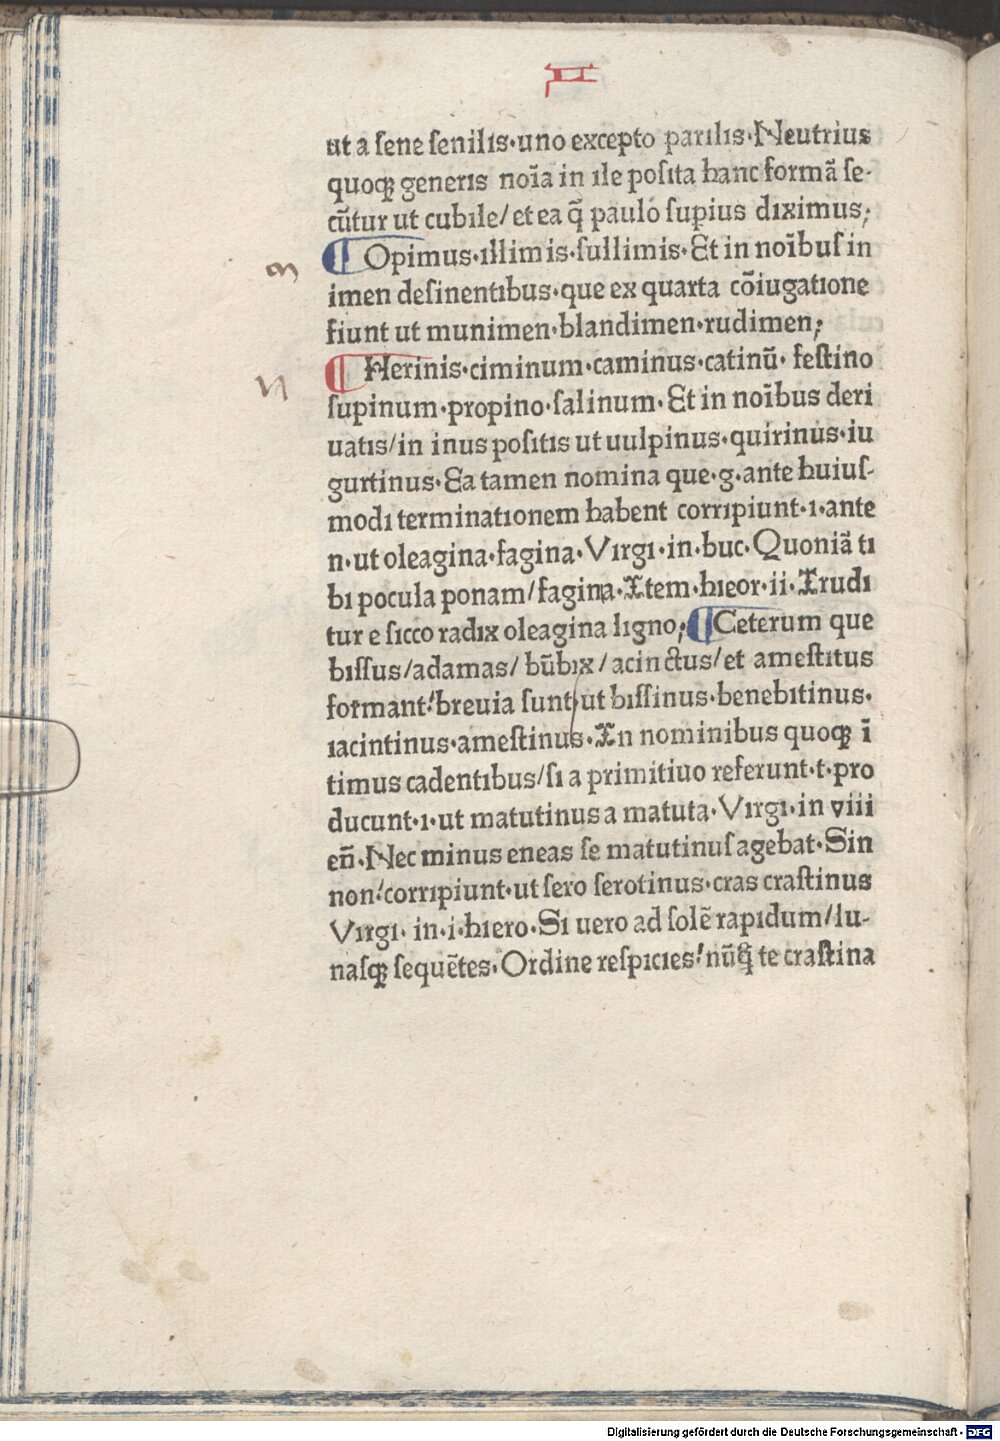 II
ut a ſene ſenilis·uno excepto parilis·Neutrius
quoqꝫ generis noı̄a in ile poſita hanc formā ſe-
cūtur ut cubile/et ea q̄ paulo ſupius diximus;
¶ Opimus·illimis·ſullimis·Et in noı̄buſ in
m
imen deſinentibus·que ex quarta cōiugatione
fiunt ut munimen·blandimen·rudimen;
¶ Herinis·ciminum·caminus·catinū·feſtino
n
ſupinum·propino·ſalinum·Et in noı̄bus deri
uatis/in inus poſitis ut uulpinus·quirinus·iu
gurtinus·Ea tamen nomina que·g·ante huiuſ-
modi terminationem habent corripiunt·i·ante
n·ut oleagina·fagina·Virgi·in·buc·Quoniā ti
bi pocula ponam/fagina·Item·hieor·ii·Trudi
tur e ſicco radix oleagina ligno;¶ Ceterum que
biſſus/adamas/būbix/acinctus/et ameſtitus
formant:breuia ſunt ut biſſinus·benebitinus·
iacintinus·ameſtinus·In nominibus quoqꝫ ī
timus cadentibus/ſi a primitiuo referunt·t·pro
ducunt·i·ut matutinus a matuta·Virgi·in viii
en̄·Nec minus eneas ſe matutinuſ agebat·Sin
non:corripiunt·ut ſero ſerotinus·cras craſtinus
Virgi·in·i·hiero·Si uero ad ſolē rapidum/lu-
naſqꝫ ſequētes·Ordine reſpicies:nūꝗ̄ te craſtina
Digitalisierung gefördert durch die Deutsche Forschungsgemeinschaft - DFG